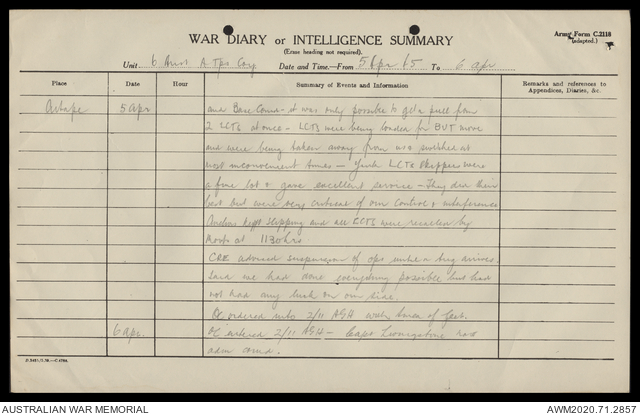 WAR DIARY or INTELLIGENCE SUMMARY
(Erase heading not required).
Army Form C.2118
(adapted.)
Unit 6 A Tps Coy Date and Time.—From 5 Apr 45 To 6 Apr
Place Date Hour Summary of Events and Information Remarks and references to Appendices, Diaries, &c.
Aitape 5 Apr and Base Comd - it was only possible to get a pull from
2 LCTs at once - LCTs were being loaded for BUT move
and were being taken away from us at
most inconvenient times - LCTs Skippers were
a fine lot & gave excellent service - They did their
best but were very critical of our control & interference
Anchors kept slipping and all LCTs were by
at 1130 hrs
CRE advised suspension of ops until a tug arrives.
Said we had done everything possible but had
not had any luck on our side.
OC ordered into 2/11 AGH with of feet.
6 Apr. OC entered 2/11 AGH - Capt Livingstone now
adm comd.
AUSTRALIAN WAR MEMORIAL
AWM2020.71.2857